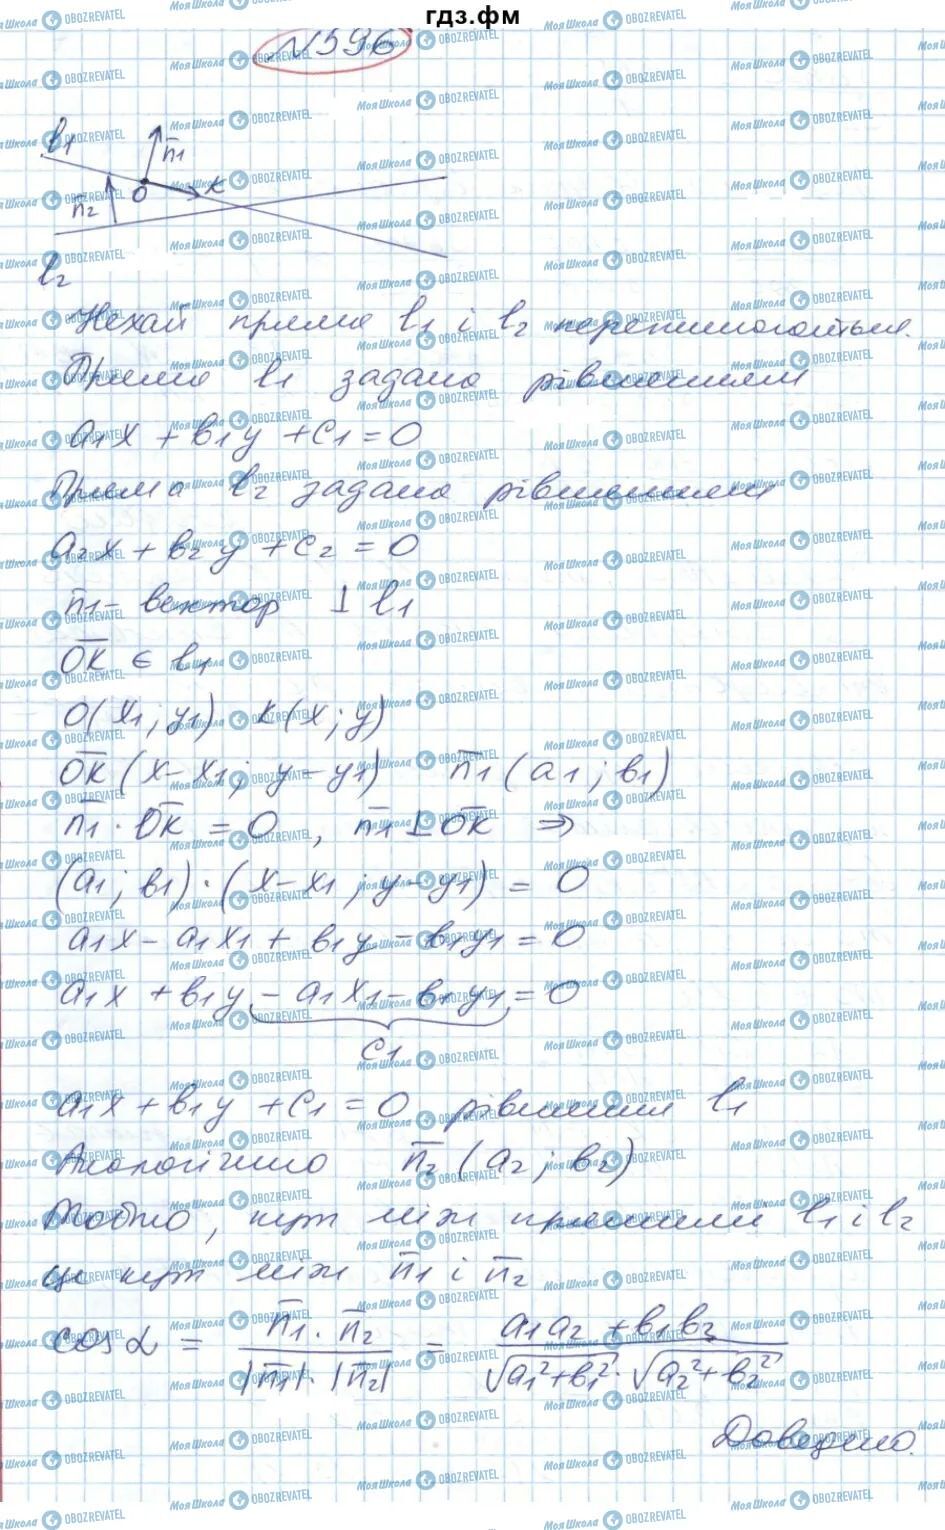 гдз.фм
№596
l₁
n̅₁
O
K
n̅₂
l₂
Нехай прямі l₁ і l₂ перетинаються.
Пряма l₁ задана рівнянням
a₁x + b₁y + c₁ = 0
Пряма l₂ задана рівнянням
a₂x + b₂y + c₂ = 0
n̅₁ - вектор ⊥ l₁
O̅K̅ ∈ l₁
O(x₁; y₁) K(x; y)
O̅K̅ (x - x₁; y - y₁) n̅₁ (a₁; b₁)
n̅₁ · O̅K̅ = 0, n̅₁ ⊥ O̅K̅ ⇒
(a₁; b₁) · (x - x₁; y - y₁) = 0
a₁x - a₁x₁ + b₁y - b₁y₁ = 0
a₁x + b₁y - a₁x₁ - b₁y₁ = 0
c₁
a₁x + b₁y + c₁ = 0 рівняння l₁
Аналогічно n̅₂ (a₂; b₂)
Тобто, кут між прямими l₁ і l₂
це кут між n̅₁ і n̅₂
cos α = (n̅₁ · n̅₂) / (|n̅₁| · |n̅₂|) = (a₁a₂ + b₁b₂) / (√(a₁² + b₁²) · √(a₂² + b₂²))
Доведено.
МояШкола OBOZREVATEL